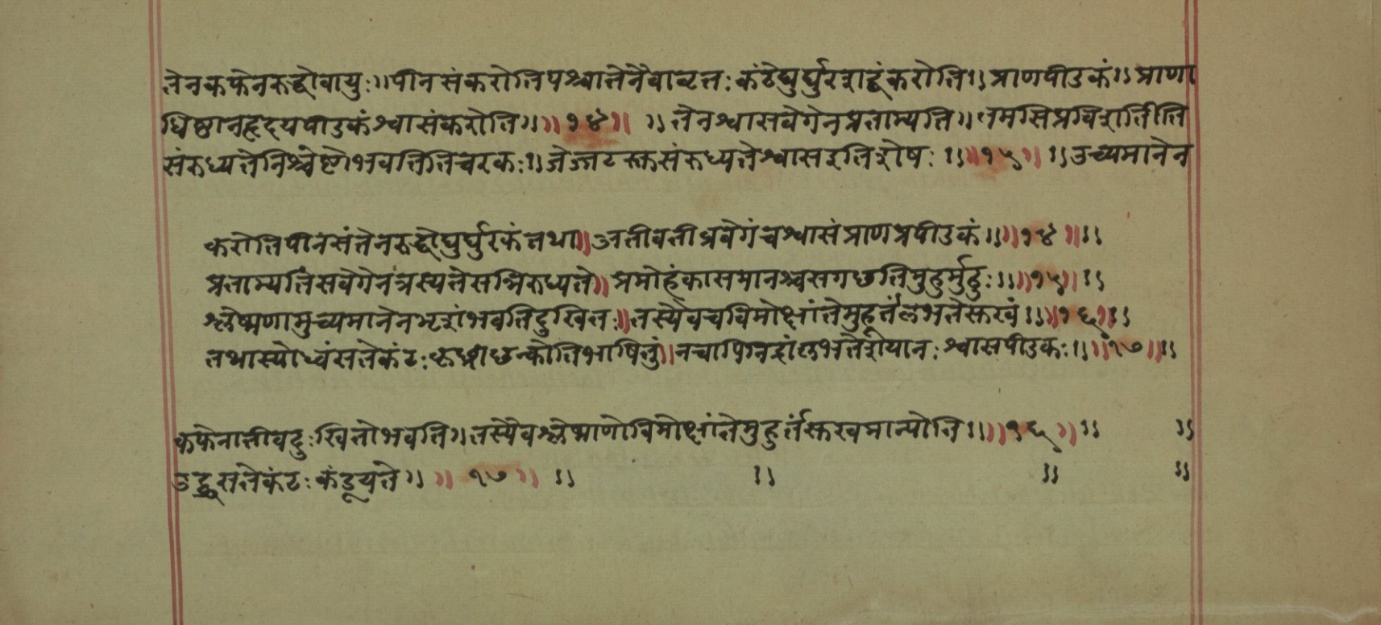 तेनकफेनरुद्धोवायुः॥पीनसंकरोतिपश्चात्तेनैवावृत्तः कंठेघुर्घुरशब्दंकरोति॥प्राणपीडकं॥प्राणा
धिष्ठानहृदयपीडकंश्वासंकरोति॥॥१४॥ ॥तेनश्वासवेगेनप्रताम्यति॥तमसिप्रविशतीति
संरुध्यतेनिश्चेष्टोभवतितिचरकः॥जेज्जटस्तसंरुध्यतेश्वासइतिशेषः॥॥१५॥॥उच्यमानेन
करोतिपीनसंतेनरुद्धोघुर्घुरकंतथा॥अतीवतीव्रवेगंचश्वासंप्राणप्रपीडकं॥॥१४॥॥
प्रताम्यतिसवेगेनत्रस्यतेसन्निरुध्यते॥प्रमोहंकासमानश्चसगछतिमुहुर्मुहुः॥॥१५॥॥
श्लेष्मणामुच्यमानेनभृशंभवतिदुखितः॥तस्यैवचविमोक्षांतेमुहूर्तंलभतेसुखं॥॥१६॥॥
तथास्योध्वंसतेकंठःकृछ्राछक्नोतिभाषितुं॥नचापिनिद्रांलभतेशयानःश्वासपीडकः॥॥१७॥॥
कफेनातीवदुःखितोभवति॥तस्यैवश्लेष्माणोविमोक्षांतेमुहुर्तंसुखमाप्नोति॥॥१६॥॥ ॥
उद्ध्वसतेकंठःकंडूयते॥॥१७॥ ॥ ॥ ॥ ॥